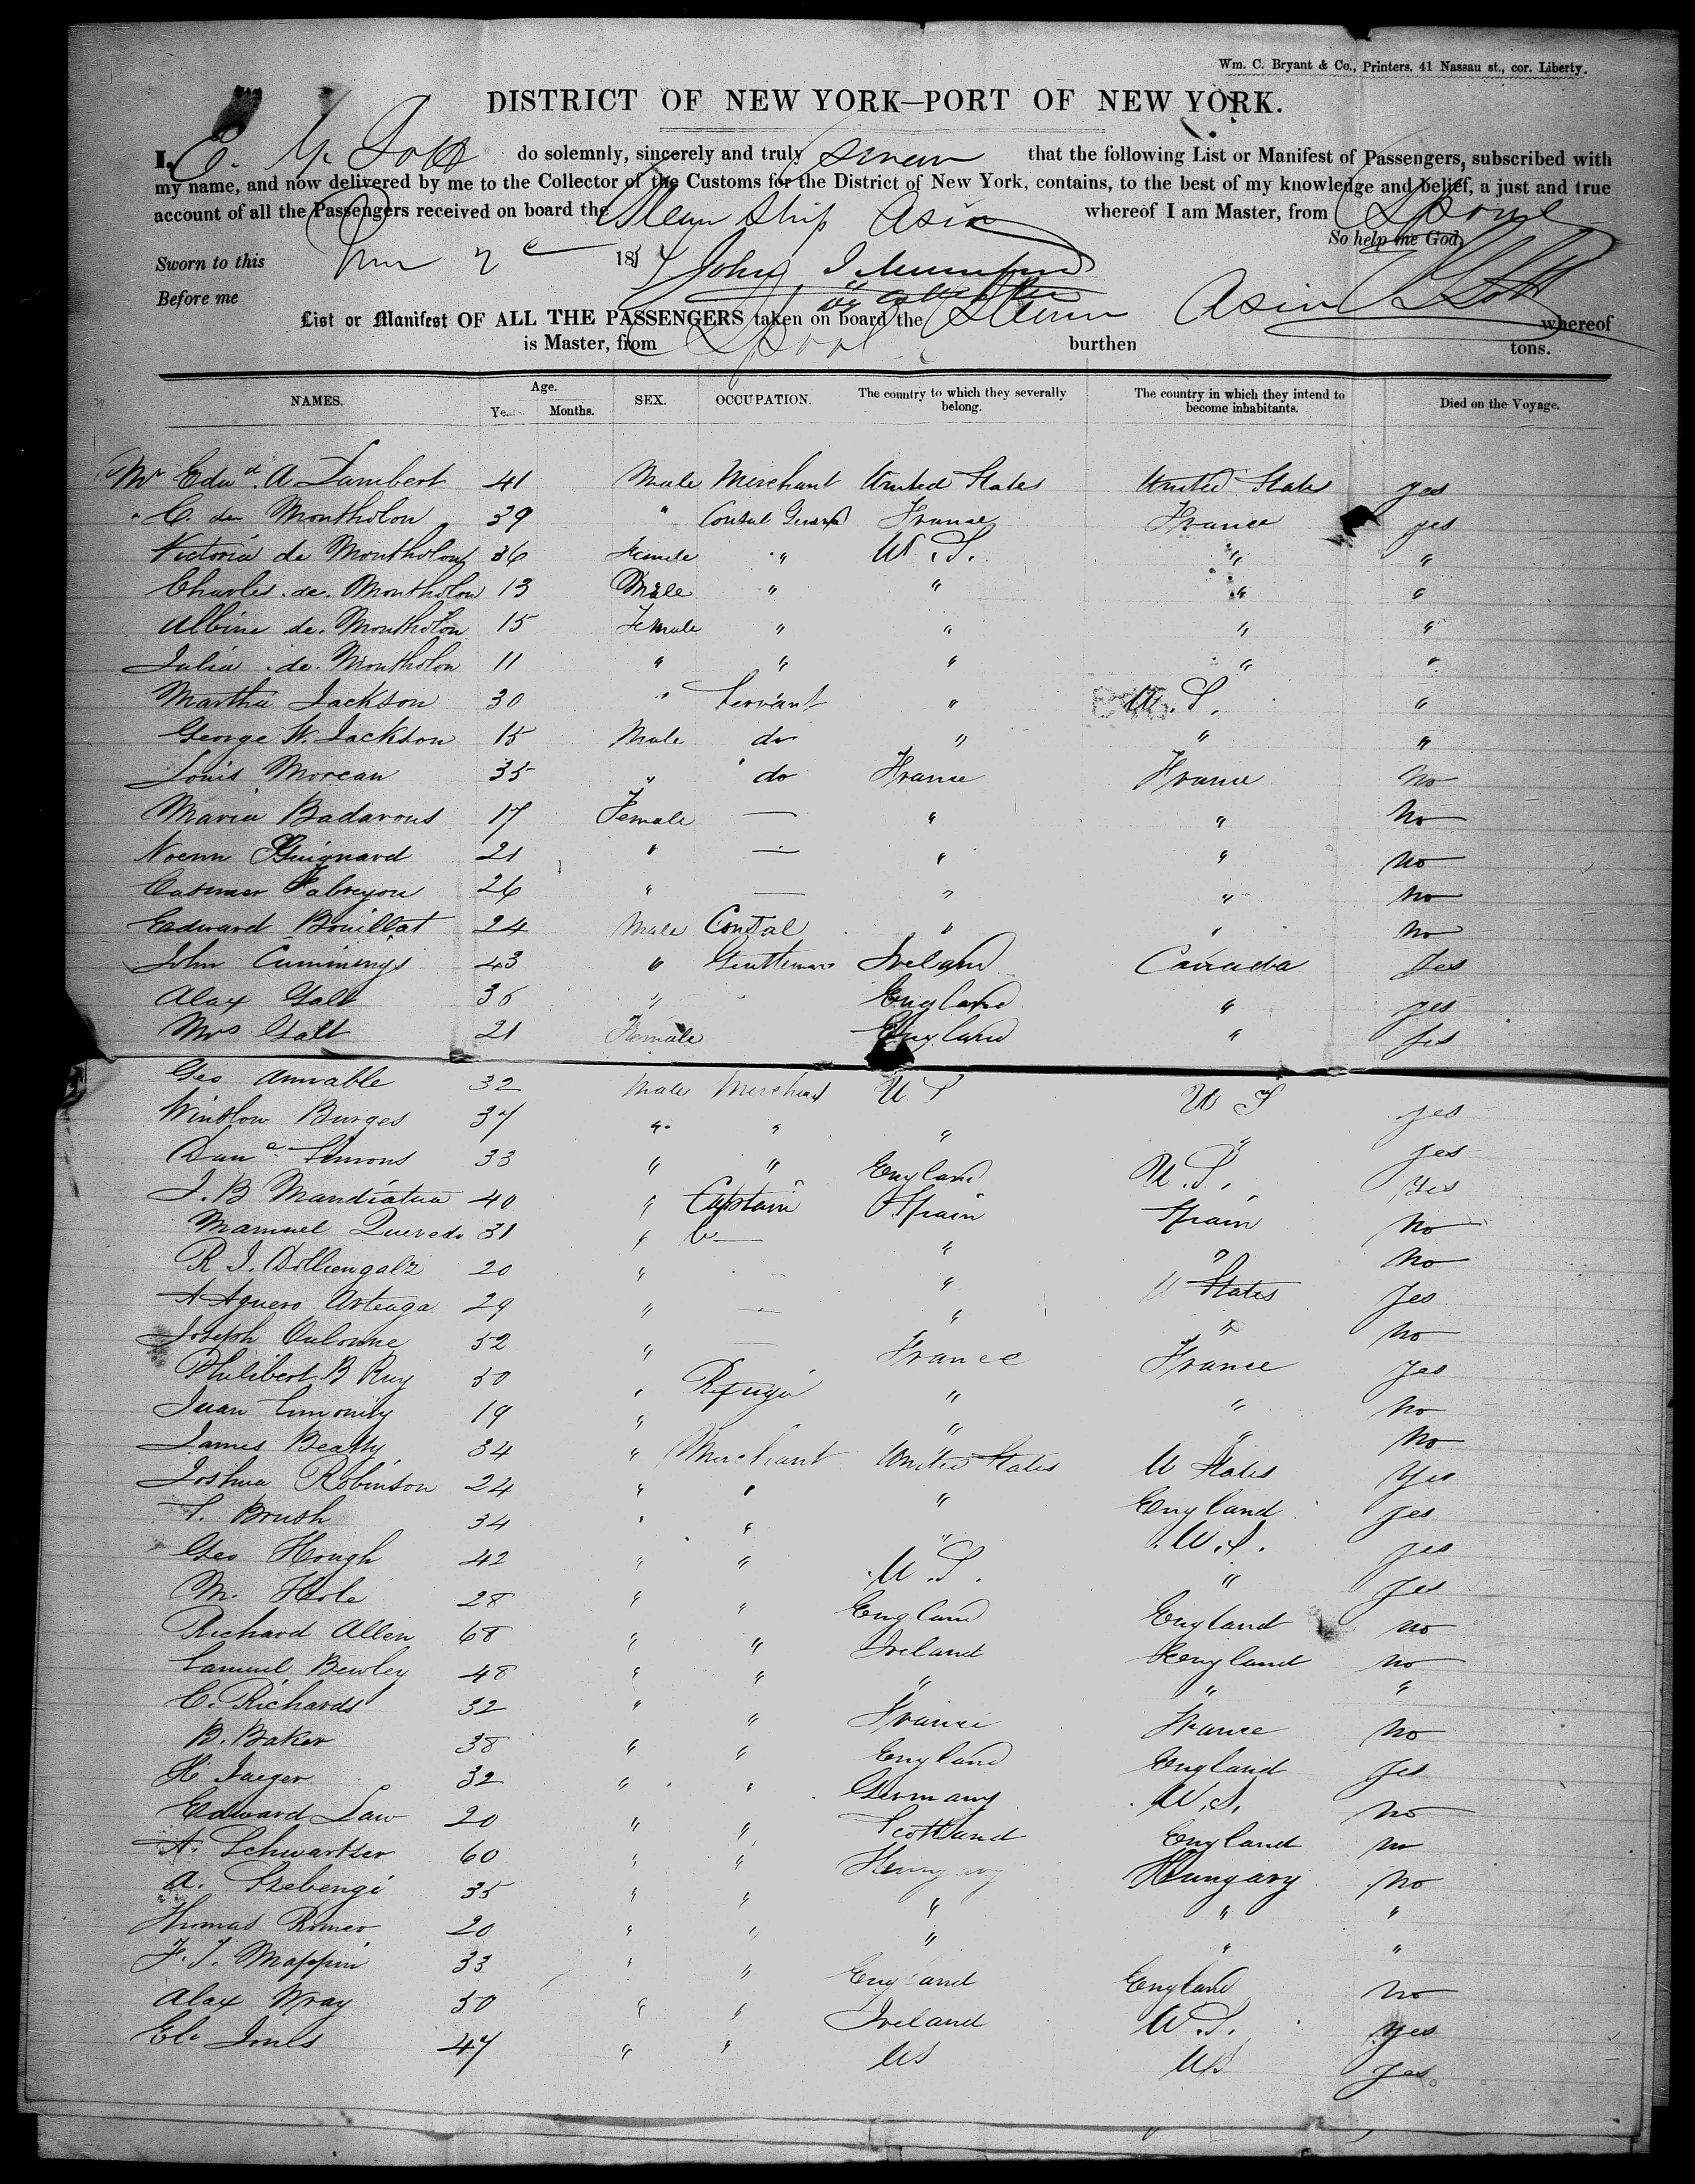 Wm. C. Bryant & Co., Printers, 41 Nassau st., cor. Liberty.
DISTRICT OF NEW YORK—PORT OF NEW YORK.
I, E. G. Lott do solemnly, sincerely and truly swear that the following List or Manifest of Passengers, subscribed with
my name, and now delivered by me to the Collector of the Customs for the District of New York, contains, to the best of my knowledge and belief, a just and true
account of all the Passengers received on board the Steam Ship Asia whereof I am Master, from L pool
So help me God,
Sworn to this 185 E G Lott
Before me John
List or Manifest OF ALL THE PASSENGERS taken on board the Steam Asia whereof
is Master, from L pool burthen tons.
NAMES. Age. Years. Months. SEX. OCCUPATION. The country to which they severally belong. The country in which they intend to become inhabitants. Died on the Voyage.
Mr Edwd. A Lambert 41 Male Merchant United States United States yes
" C. de Montholon 39 " Consul General France France yes
Victoria de Montholon 36 Female " U.S. " "
Charles de Montholon 13 Male " " " "
Albine de Montholon 15 Female " " " "
Julia de Montholon 11 " " " " "
Martha Jackson 30 " Servant " U.S. "
George W. Jackson 15 Male do " " "
Louis Moreau 35 " do France France No
Maria Badarous 17 Female — " " No
Noemi Guignard 21 " — " " no
Casimer Fabreyou 26 " — " " no
Edward Bouillat 24 Male Consal " " no
John Cummings 43 " Gentleman Ireland Canada Yes
Alax Galt 36 " England " yes
Mrs Galt 21 Female England " yes
Geo Annable 32 Male Merchant U S U S yes
Winslow Burges 37 " " " " yes
Simons 33 " " England U.S. Yes
J. B Mandiatua 40 " Captain Spain Spain No
Mamuel Quevedo 31 " — " " No
R J. 20 " — " U States Yes
A Aguero Arteaga 29 " — " " no
Joseph 52 " — France France Yes
Philibert B Ruy 50 " Refugé " " No
Juan 19 " " " No
James Beatty 34 " Merchant United States U States Yes
Joshua Robinson 24 " " " England yes
T. Brush 34 " " " U.S. yes
Geo Hough 42 " " U.S. " Yes
M. Hole 28 " " England England no
Richard Allen 68 " " Ireland England no
Samuel Bewley 48 " " " " "
C. Richards 32 " " France France No
B. Baker 38 " " England England Yes
H Jaeger 32 " " Germany U.S. No
Edward Law 20 " " Scotland England no
A. Schwartser 60 " " Hungary Hungary No
A. Szebengi 35 " " " " "
Thomas Romer 20 " " " " "
F. J. Mappin 33 " " England England No
Alax Wray 50 " " Ireland U.S. yes
47 " " US US Yes